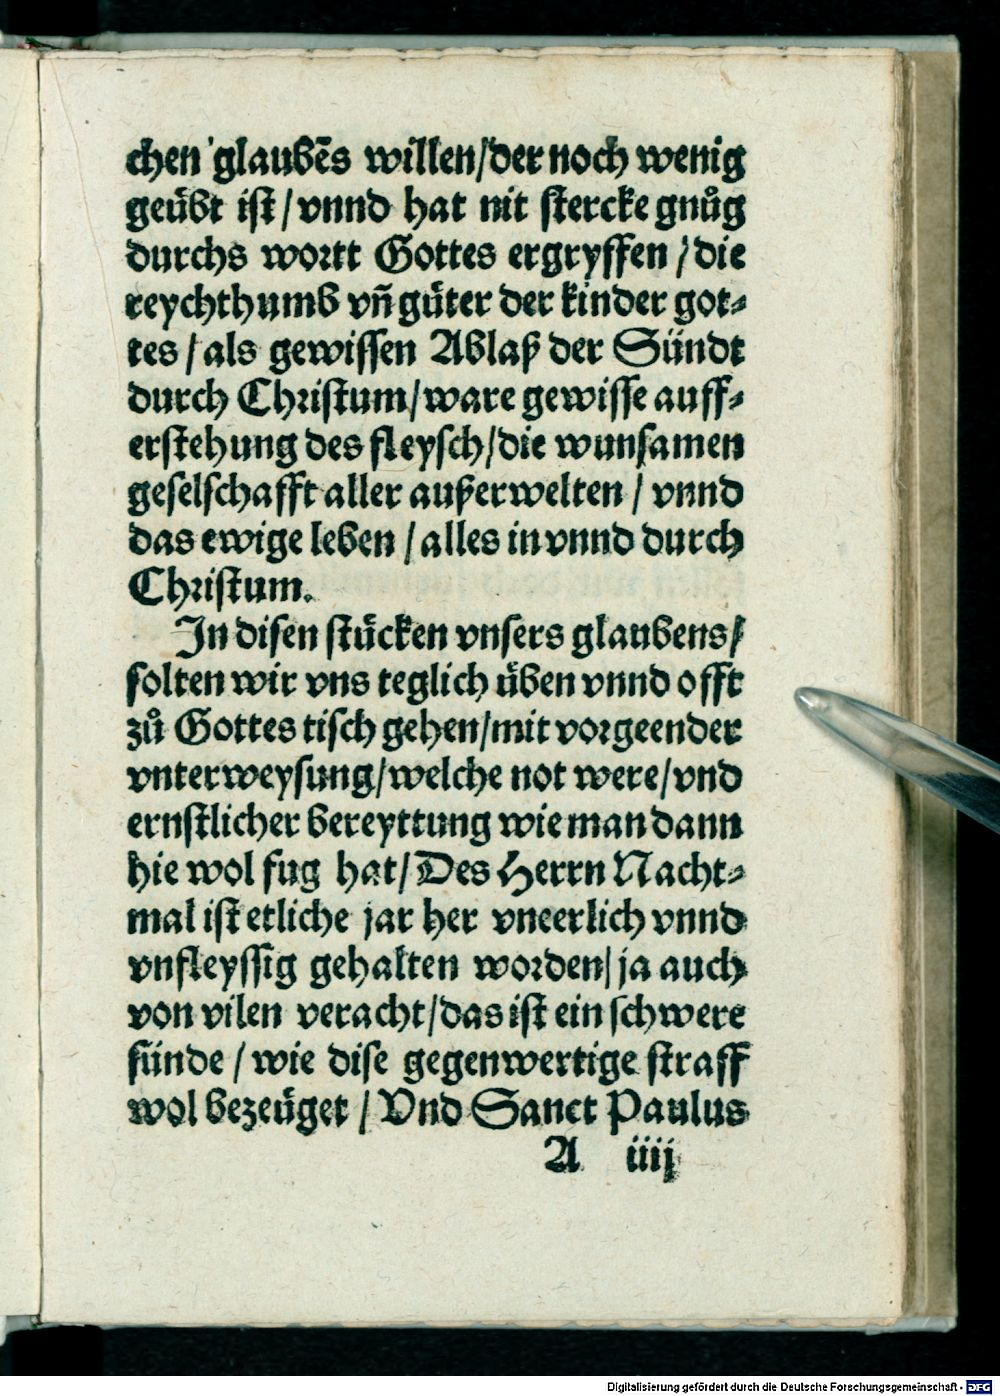 chen glaubẽs willen/der noch wenig
geuͤbt ist/vnnd hat nit stercke gnuͦg
durchs wortt Gottes ergryffen/die
reychthumb vñ guͤter der kinder got⸗
tes/als gewissen Ablaß der Sündt
durch Christum/ware gewisse auff⸗
erstehung des fleysch/die wunsamen
geselschafft aller außerwelten/vnnd
das ewige leben/alles in vnnd durch
Christum.
In disen stuͤcken vnsers glaubens/
solten wir vns teglich uͤben vnnd offt
zuͦ Gottes tisch gehen/mit vorgeender
vnterweysung/welche not were/vnd
ernstlicher bereyttung wie man dann
hie wol fug hat/Des Herrn Nacht⸗
mal ist etliche jar her vneerlich vnnd
vnfleyssig gehalten worden/ja auch
von vilen veracht/das ist ein schwere
sünde/wie dise gegenwertige straff
wol bezeuͤget/Vnd Sanct Paulus
A iiij
Digitalisierung gefördert durch die Deutsche Forschungsgemeinschaft - DFG